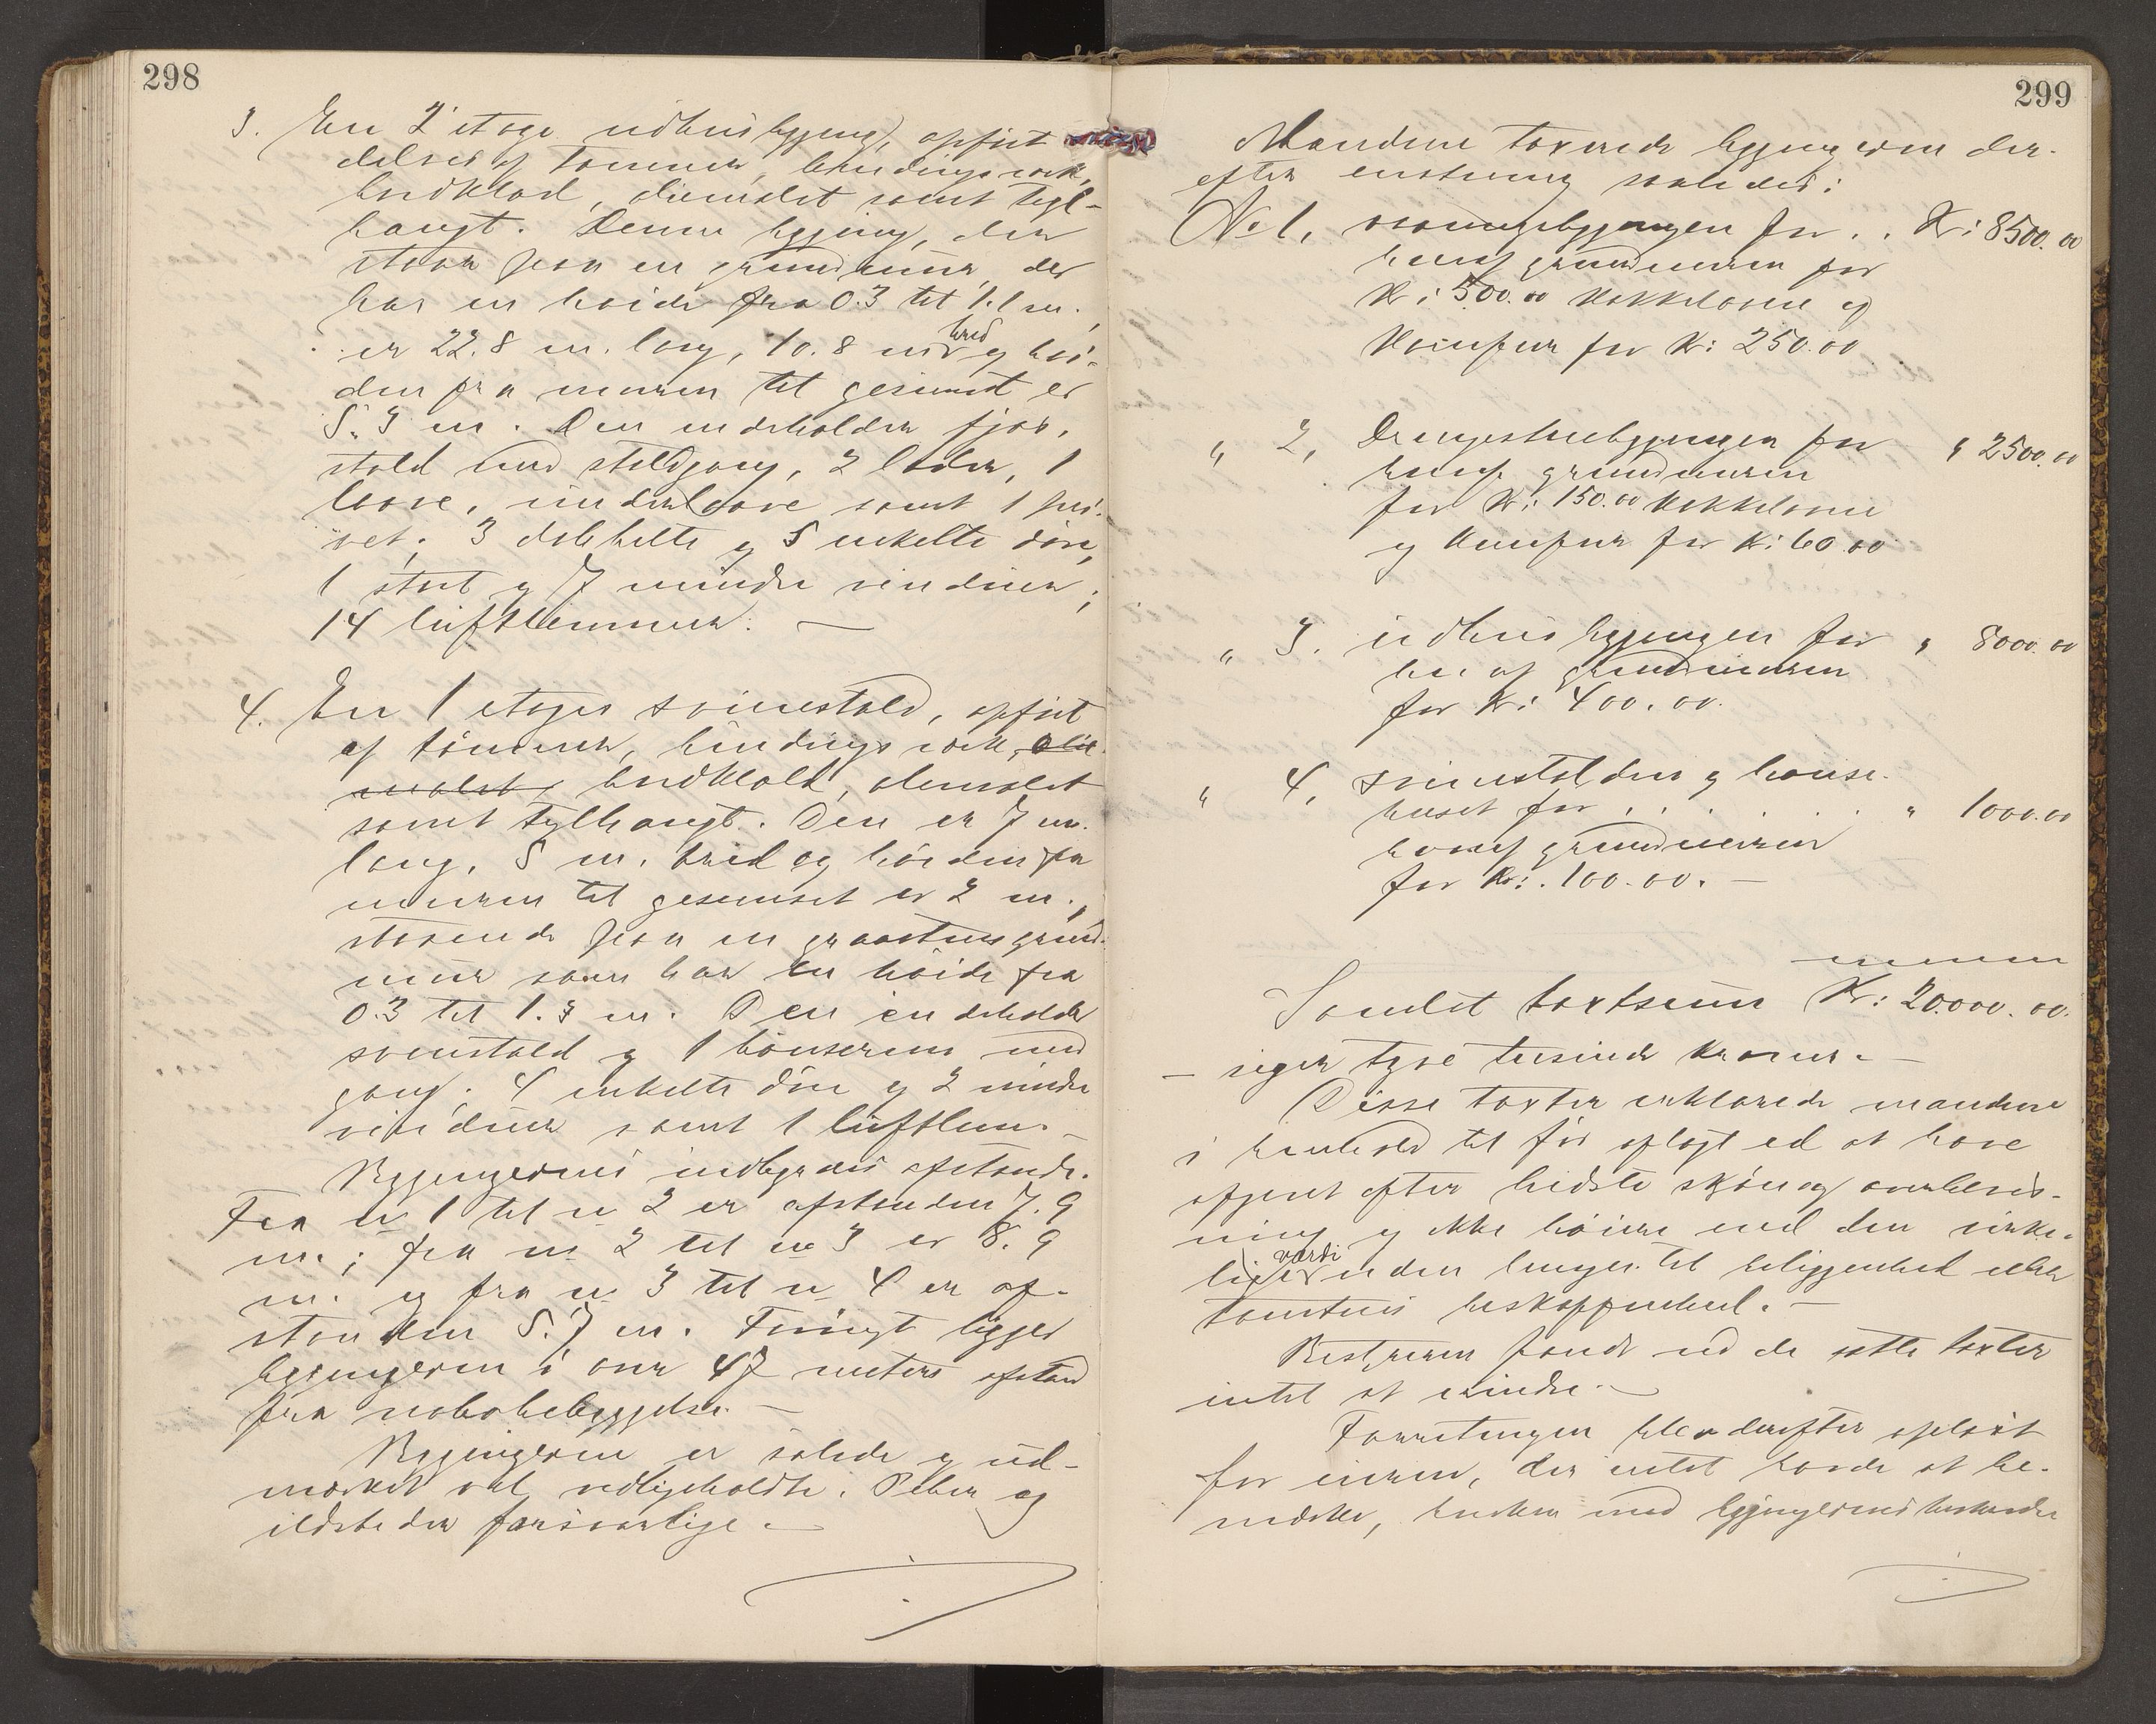 298
3. En 2 etages udhusbygning, opført
delvis af tømmer, bindingsverk,
bordklæd, oliemalet samt tegl-
hængt. Denne bygning, der
staar paa en grundmur, der
har en høide fra 0.3 til 1.1 m.,
er 22.8 m. lang, 10.8 m bred og høi-
den fra muren til gesimset er
5.3 m. Den indeholder fjøs,
stald med staldgang, 2 lader, 1
laave, underlaave samt 1 pri-
vet; 3 dobbelte og 5 enkelte døre,
1 stort og 7 mindre vinduer;
14 luftlemmer. —
4. En 1 etages svinestald, opført
af tømmer, bindingsverk, olie-
malet, bordklæd, oliemalet
samt teglhængt. Den er 7 m.
lang, 5 m. bred og høiden fra
muren til gesimset er 2 m.,
staaende paa en graastensgrund-
mur som har en høide fra
0.3 til 1.3 m. Den indeholder
svinestald og 1 hønserum med
gang; 4 enkelte døre og 2 mindre
vinduer samt 1 luftlem. —
Bygningernes indbyrdes afstande.
Fra n 1 til n 2 er afstanden 7.9
m.; fra n 2 til n 3 er 8.9
m. og fra n 3 til n 4 er af-
standen 5.7 m. Forøvrigt ligger
bygningerne i over 47 meters afstand
fra nabobebyggelse. —
Bygningerne er solide og ud-
mærket vel vedligeholdte. Piber og
ildsteder forsvarlige. —
299
Mændene taxerede bygningerne der-
efter enstemmig saaledes:
No 1, vaaningsbygningen for . . Kr: 8500.00
heraf grundmuren for
Kr: 500.00 Kakkelovne og
Komfur for Kr: 250.00
" 2, Drengestuebygningen for " 2500.00
heraf grundmuren
for Kr: 150.00 Kakkelovne
og Komfur for Kr: 60.00
" 3. udhusbygningen for " 8000.00
heraf grundmuren
for Kr: 400.00.
" 4, svinestalden og hønse-
huset for . . . . . " 1000.00
heraf grundmuren
for Kr: 100.00. —
Samlet taxtsum Kr: 20.000.00.
— siger tyve tusinde kroner. —
Disse taxter erklærede mændene
i henhold til før aflagt ed at have
afgivet efter bedste skjøn og overbevis-
ning og ikke høiere end den virke-
lige værdi uden hensyn til beliggenhed eller
tomtens beskaffenhed. —
Bestyreren fandt ved de satte taxter
intet at erindre. —
Forretningen blev derefter oplæst
for eieren, der intet havde at be-
mærke, hverken med bygningernes beskrivelse